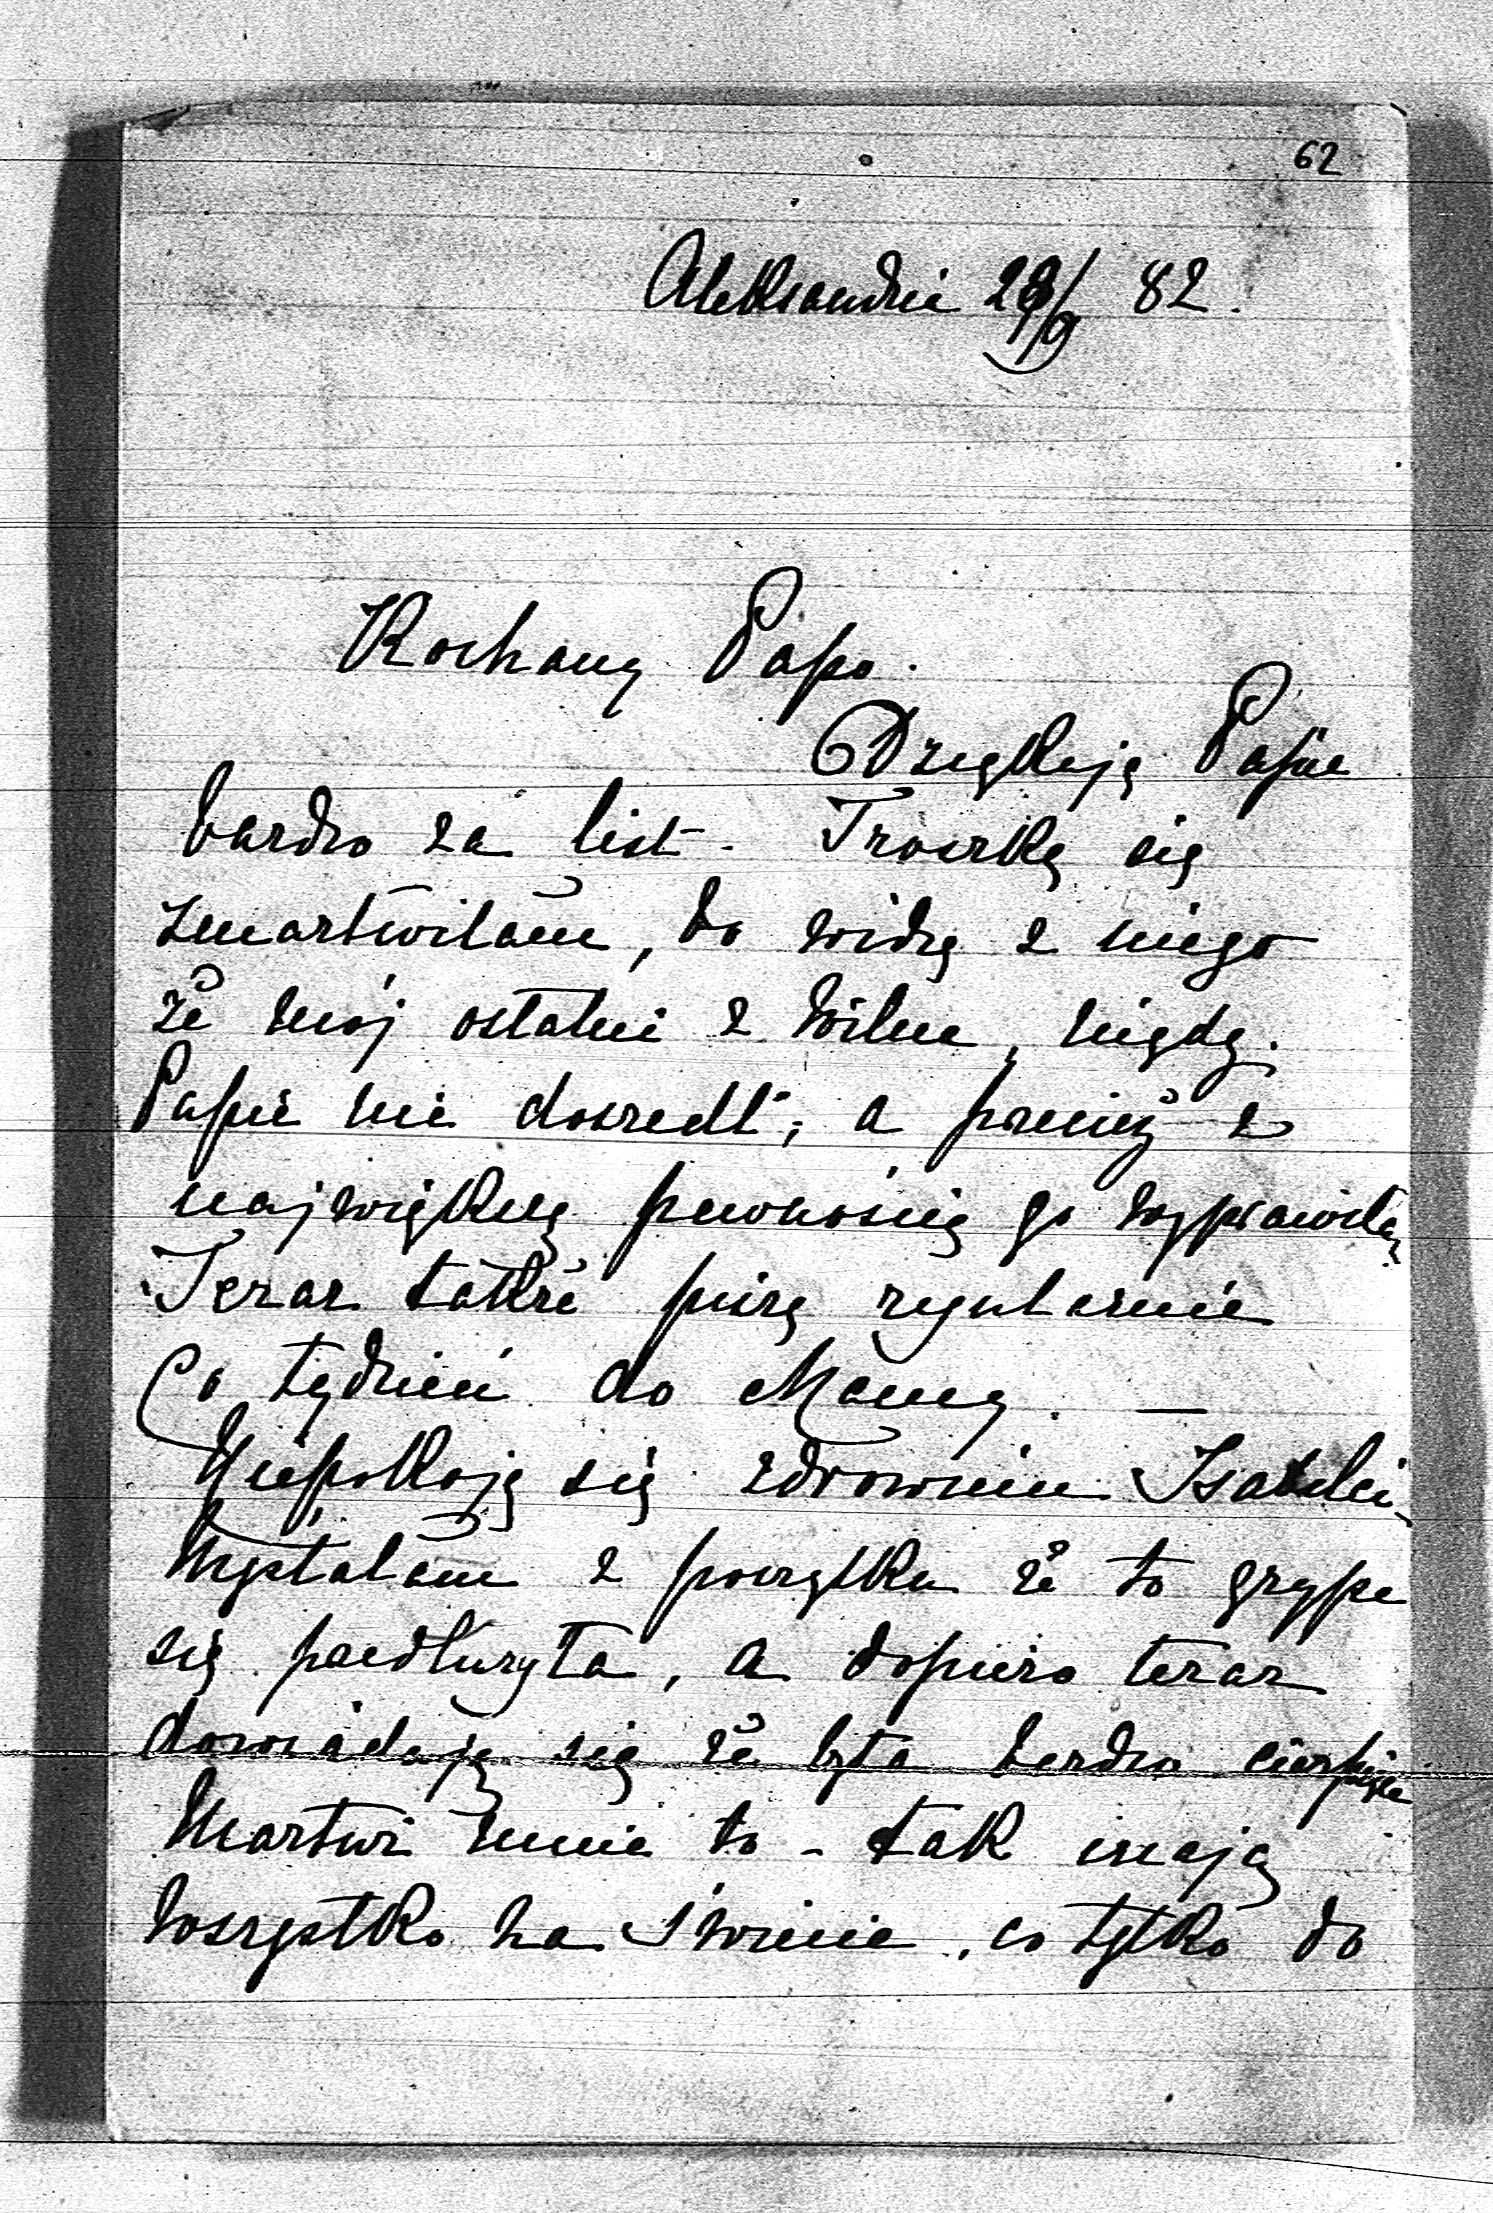 62
Aleksandria 28/9 82.
Kochany Papo.
Dziękuję Papie
bardzo za list. Troszkę się
zmartwiłam, bo widzę z niego
że mój ostatni z Wilna, nigdy
Papie nie doszedł; a przecież z
największą pewnością go wyprawiłam
Teraz także piszę regularnie
co tydzień do Mamy. —
Niepokoję się zdrowiem Isabelci,
Myślałam z początku że to grypa
się przedłużyła, a dopiero teraz
dowiaduję się że była bardzo cierpiąca
Martwi mnie to - tak mają
wszystko na świecie, co tylko do